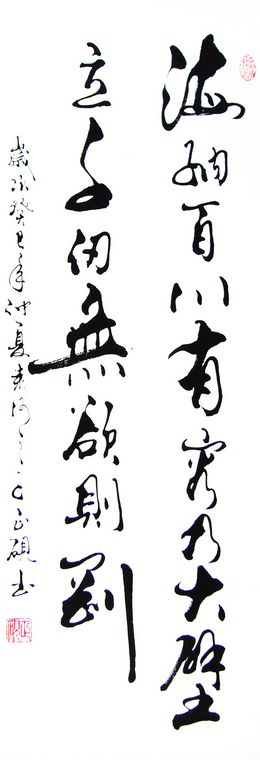 海納百川有容乃大壁
立千仞無欲則剛
歲次癸巳年仲夏正硯書